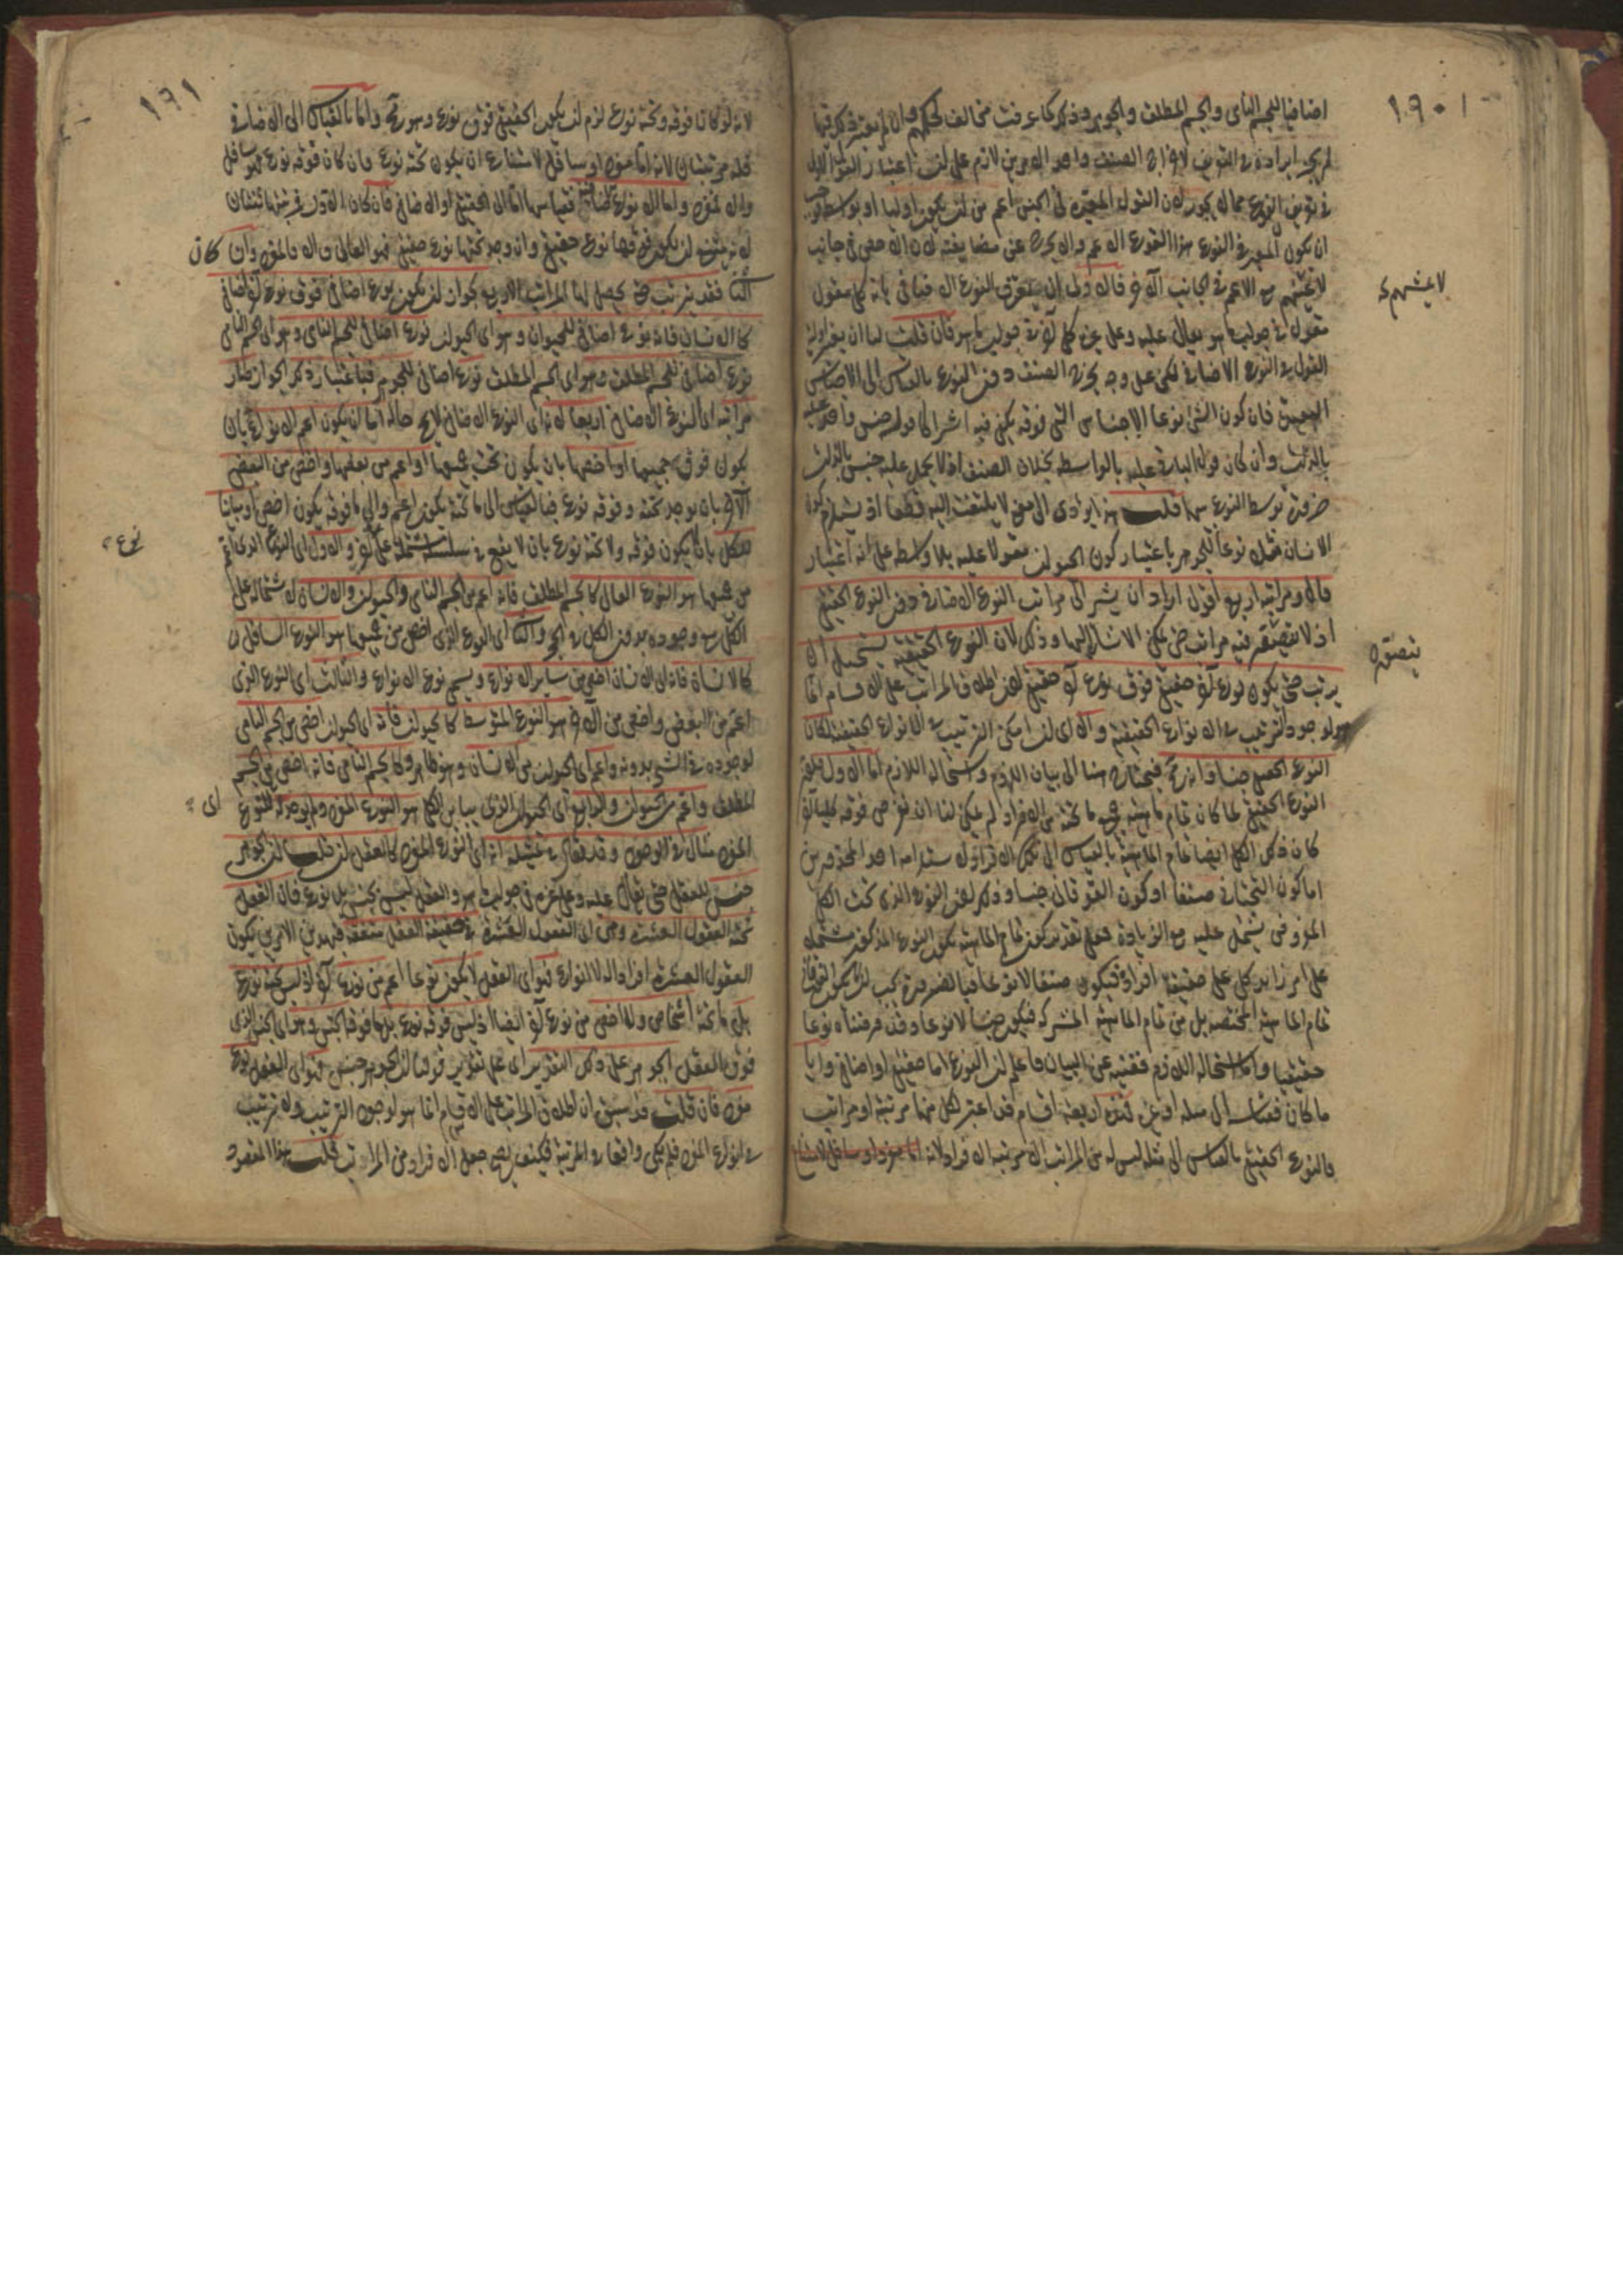 ١٩٠
اضافيا للجسم النامى والجسم المطلق والجوهر وذلك كما عرفت مخالف لحكمهم وان لم يعتبر ذلك فيها
لم يجز ايراده فى التعريف لاخراج الصنف واحد الامرين لازم على ان اعتبار القول الاولى
فى تعريف النوع مما لا يجوز لان القول المعتبر فى الجنس اعم من ان يكون اوليا او بواسطة فيجب
ان يكون المعتبر فى النوع هذا النوع الاعم والا يخرج عن مضايفته لان الاخص فى جانب
لا يفهم مع الاعم فى الجانب الآخر فالاولى ان يعرف النوع الاضافى بانه كلى مقول
مقول فى جواب ما هو يقال عليه وعلى غيره كلى آخر فى جواب ما هو فان قلت لنا ان نعتبر اولية
القول فى النوع الاضافى لكن على وجه يخرج الصنف دون النوع بالقياس الى الاجناس
البعيدة فان كون الشئ نوعا لاجناس التى فوقه يكفى فيه اشراك قول جنس واحد عليه
بالذات وان كان قول الباقى عليه بالواسطة بخلاف الصنف اذ لا يحمل عليه جنس بالذات
ضرورة توسط النوع بينهما قلت هذا يؤدى الى معنى لا يلتفت اليه قطعا اذ يستلزم كون
الانسان مثلا نوعا للجوهر باعتبار كون الحيوان مقولا عليه بلا واسطة على انه اعتبار
قال ومراتبه اربع اقول اراد ان يشير الى مراتب النوع الاضافى دون النوع الحقيقى
اذ لا يتصور فيه مراتب حتى يمكن الاشارة اليها وذلك لان النوع الحقيقى يستحيل ان
يترتب حتى يكون نوع آخر حقيقى فوق نوع آخر حقيقى لان اطلاق المراتب على الاقسام انما
هو لوجود الترتيب فى الانواع الحقيقية والا اى ان امكن الترتيب فى الانواع الحقيقية لكان
النوع الحقيقى جنسا وانه محال فيحتاج هنا الى بيان اللزوم واستحالة اللازم اما الاول فلان
النوع الحقيقى لما كان تمام ماهية جميع ما تحته من الافراد لم يمكن لنا ان نفرض فوقه كليا آخر
كان ذلك الكلى ايضا تمام الماهية بالقياس الى تلك الافراد لاستلزامه احد المحذورين
اما كون التحتانى صنفا او كون الفوقانى جنسا وذلك لان النوع الذى تحت الكلى
المفروض يشتمل عليه مع الزيادة فعلى تقدير كونه تمام الماهية يكون النوع المذكور مشتملا
على امر زائد كلى على حقيقة افراده فيكون صنفا لا نوعا فبالضرورة يجب ان لا يكون الفوقانى
تمام الماهية المختصة بل من تمام الماهية المشتركة فيكون جنسا لا نوعا وقد فرضناه نوعا
حقيقيا واما استحالة اللازم فغنية عن البيان واعلم ان النوع اما حقيقى او اضافى وايا
ما كان فقياسه الى مثله او غيره فهذه اربعة اقسام قد اعتبر لكل منها مرتبة او مراتب
فالنوع الحقيقى بالقياس الى مثله ليس له من المراتب الا مرتبة الافراد لانه
لا يفهم
يتصور
١٩١
لانه لو كان فوقه او تحته نوع لزم ان يكون الحقيقى فوق نوع وهو محال واما بالقياس الى الاضافى
فله مرتبتان لانه اما مفرد او سافل لامتناع ان يكون تحته نوع فان كان فوقه نوع فهو سافل
والا فمفرد واما النوع الاضافى فقياسه اما الى الحقيقى او الاضافى فان كان الاول فمرتبتان
لانه يمتنع ان يكون فوقها نوع حقيقى وان وجد تحتها نوع حقيقى فهو العالى والا فالمفرد وان كان
الثانى فقد يترتب حتى يحصل لها المراتب الاربع لجواز ان يكون نوع اضافى فوق نوع آخر اضافى
كالانسان فانه نوع اضافى للحيوان وهو اى الحيوان نوع اضافى للجسم النامى وهو اى الجسم النامى
نوع اضافى للجسم المطلق وهو اى الجسم المطلق نوع اضافى للجوهر فباعتبار ذلك الجواز صار
مراتبه اى النوع الاضافى اربعا لانه اى النوع الاضافى لا يخلو حاله اما ان يكون اعم الانواع بان
يكون فوق جميعها او اخصها بان يكون تحت جميعها او اعم من بعضها واخص من البعض
الآخر بان يوجد تحته وفوقه نوع فبالقياس الى ما تحته يكون اعم والى ما فوقه يكون اخص او مباينا
للكل بان لا يكون فوقه ولا تحته نوع بان لا يقع فى سلسلة مشتملة على آخر والاول اى النوع الذى اعم
من جميعها هو النوع العالى كالجسم المطلق فانه اعم من الجسم النامى والحيوان والانسان لاشتماله على
الكل ووجوده بدون الكل فى الحجر والثانى اى النوع الذى اخص من جميعها هو النوع السافل
كالانسان فانه اى الانسان اخص من سائر الانواع ويسمى نوع الانواع والثالث اى النوع الذى
اعم من البعض واخص من الآخر هو النوع المتوسط كالحيوان فانه اى الحيوان اخص من الجسم النامى
لوجوده فى الشجر بدونه واعم اى الحيوان من الانسان وهو ظاهر وكالجسم النامى فانه اخص من الجسم
المطلق واعم من الحيوان والرابع اى الحيوان الذى يباين الكل هو النوع المفرد ولم يوجد للنوع
المفرد مثال فى الوجود وقد يقال فى تمثيله انه اى النوع المفرد كالعقل ان قلت ان الجوهر
جنس للعقل حتى يقال عليه وعلى غيره فى جواب ما هو والعقل ليس بجنس بل نوع فان العقل
تحته العقول العشرة وهى اى العقول العشرة فى حقيقة العقل متفقة فبهذين الامرين يكون
العقول العشرة افرادا له لا انواعا فهو اى العقل لا يكون نوعا اعم من نوع آخر اذ ليس تحته نوع
بل ما تحته اشخاص ولا اخص من نوع آخر ايضا اذ ليس فوقه نوع بل ما فوقه الجنس وهو اى الجنس الذى
فوق العقل الجوهر على ذلك التقدير اى على تقدير قولنا ان الجوهر جنس فهو اى العقل نوع
مفرد فان قلت قد سبق ان اطلاق المراتب على الاقسام انما هو لوجود الترتيب ولا ترتيب
فى النوع المفرد فلم يكن واقعا فى المرتبة فكيف يصح جعل الافراد من المراتب قلت هذا المقصود
نوع
اى